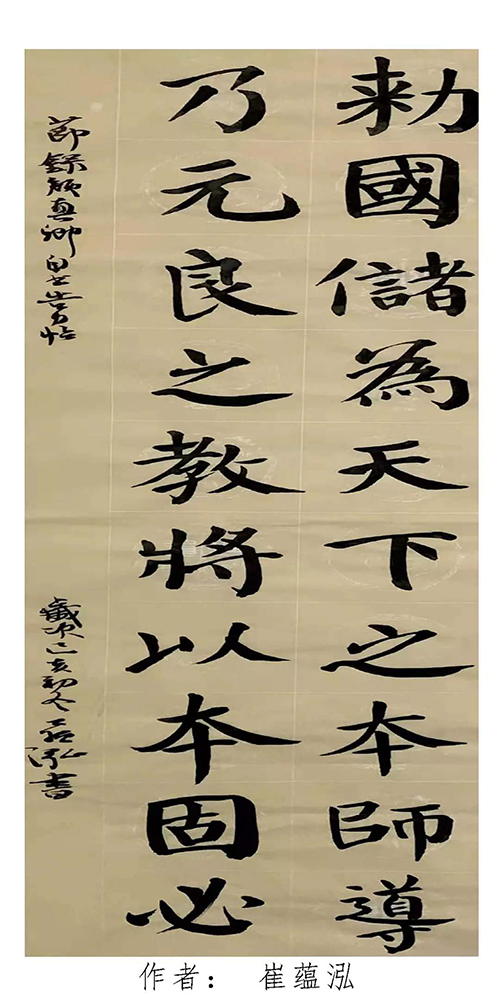 勅國儲為天下之本師導
乃元良之教將以本固必
節錄顏真卿自書告身帖
歲次己亥初冬蕴泓書
作者： 崔蕴泓